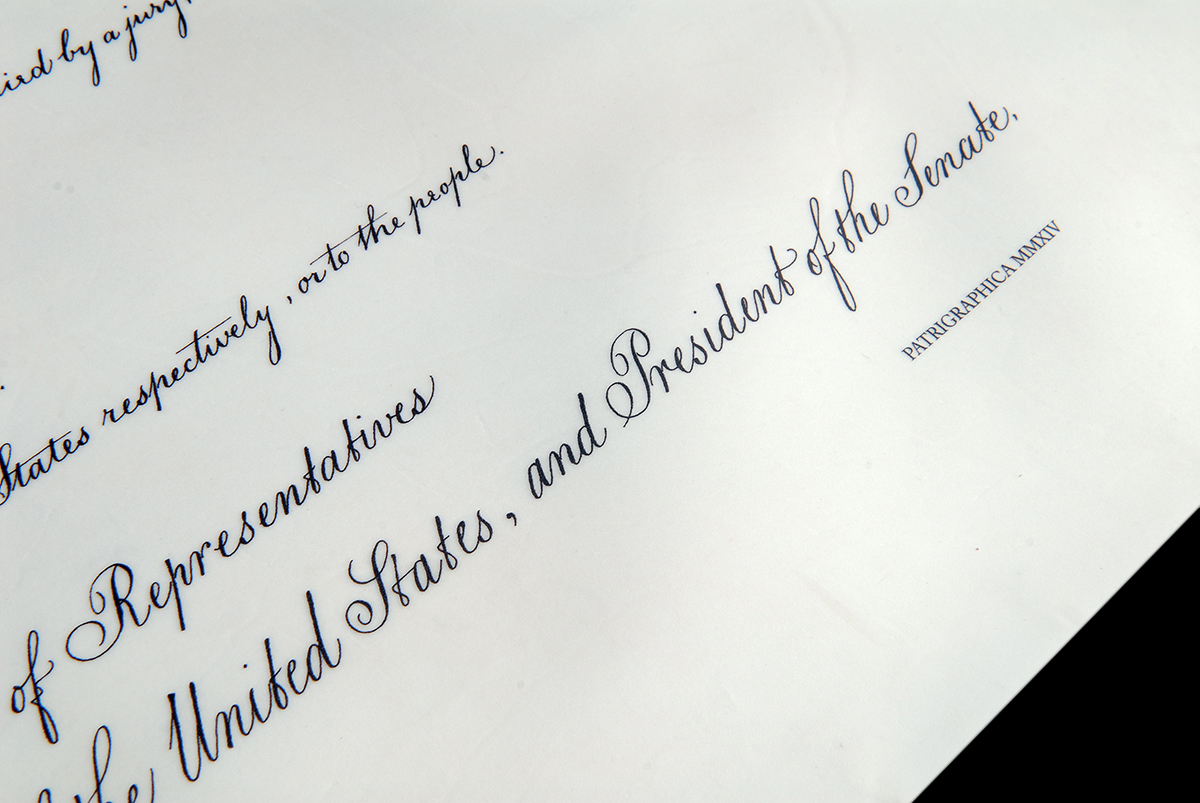 by a jury,
States respectively, or to the people.
of Representatives
the United States, and President of the Senate.
PATRIGRAPHICA MMXIV